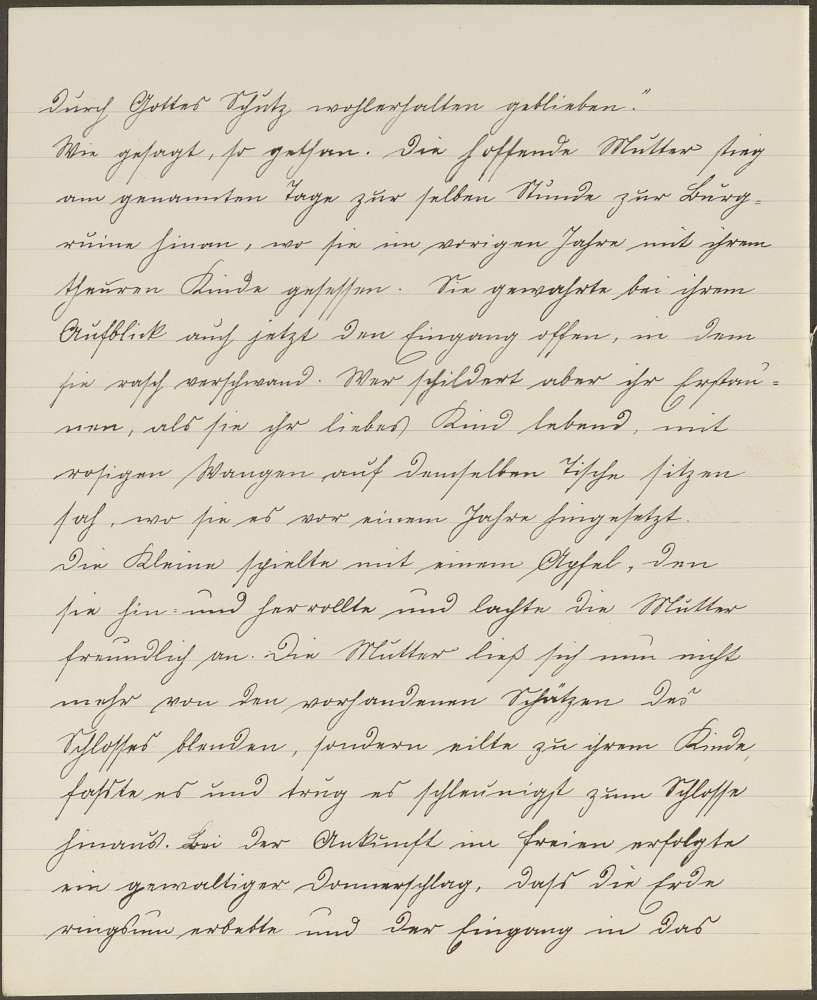 durch Gottes Schutz wohlerhalten geblieben."
Wie gesagt, so gethan. Die hoffende Mutter stieg
am genannten Tage zur selben Stunde zur Burg-
ruine hinan, wo sie im vorigen Jahre mit ihrem
theuren Kinde gesessen. Sie gewahrte bei ihrem
Aufblick auch jetzt den Eingang offen, in dem
sie rasch verschwand. Wer schildert aber ihr Erstau-
nen, als sie ihr liebes Kind lebend, mit
rosigen Wangen auf demselben Tische sitzen
sah, wo sie es vor einem Jahre hingesetzt.
Die Kleine spielte mit einem Apfel, den
sie hin- und herrollte und lachte die Mutter
freundlich an. Die Mutter ließ sich nun nicht
mehr von den vorhandenen Schätzen des
Schlosses blenden, sondern eilte zu ihrem Kinde,
faßte es und trug es schleunigst zum Schlosse
hinaus. Bei der Ankunft im Freien erfolgte
ein gewaltiger Donnerschlag, daß die Erde
ringsum erbebte und der Eingang in das